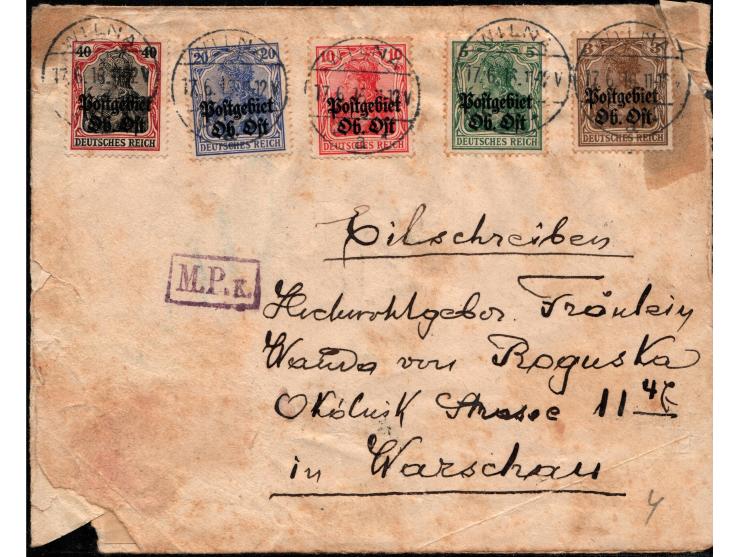 WILNA WILNA WILNA WILNA
40 40 20 20 10 10 5 5 3 3
17.6.16.11-12V 17.6.1 -12V 17.6.16. -12V 17.6.16.11-12V 17.6.16.11-12V
Postgebiet Postgebiet Postgebiet Postgebiet Postgebiet
Ob. Ost Ob. Ost Ob. Ost Ob. Ost Ob. Ost
DEUTSCHES REICH DEUTSCHES REICH DEUTSCHES REICH DEUTSCHES REICH DEUTSCHES REICH
Eilschreiben
M.P.K.
Hochwohlgebor. Fräulein
Wanda von Roguska
Okólnik Strasse 11
in Warschau
4